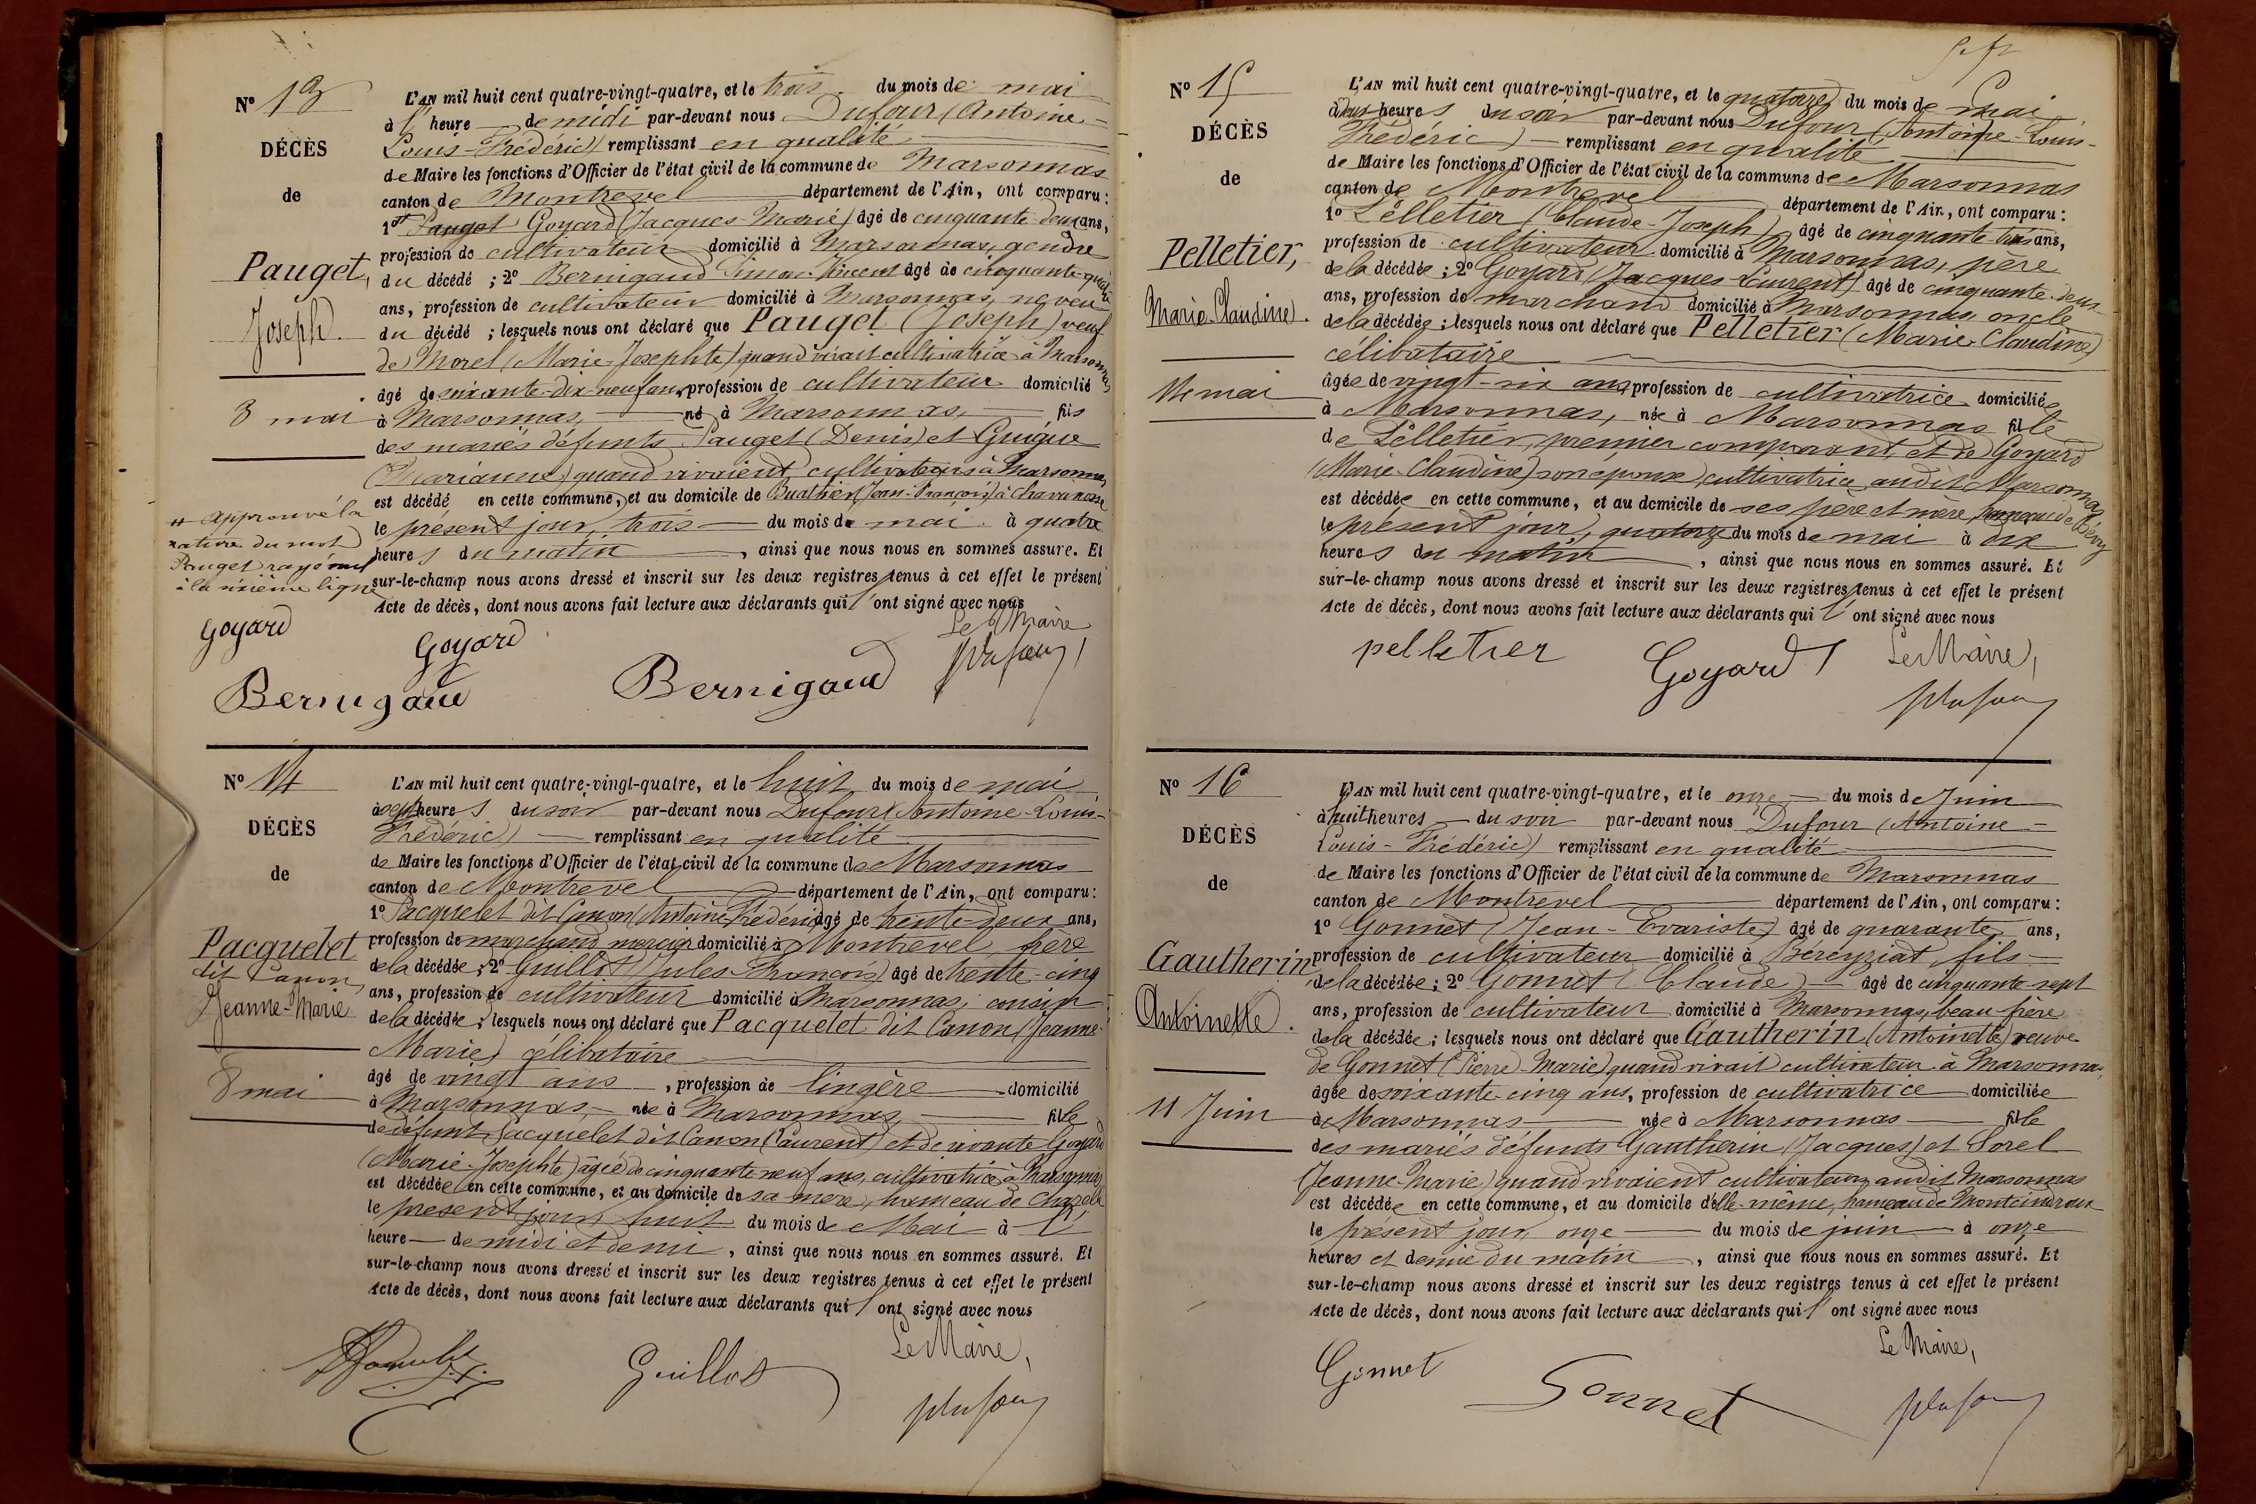 N° 13
DÉCÈS
de
Pauget,
Joseph.
3 mai
L'AN mil huit cent quatre-vingt-quatre, et le trois du mois de mai
à l' heure de midi par-devant nous Dufour (Antoine-
Louis-Frédéric) remplissant en qualité
de Maire les fonctions d'Officier de l'état civil de la commune de Marsonnas
canton de Montrevel département de l'Ain, ont comparu :
1° Pauget Goyard (Jacques-Marie) âgé de cinquante-deux ans,
profession de cultivateur domicilié à Marsonnas, gendre
du décédé ; 2° Bernigaud Simon-Vincent âgé de cinquante-quatre
ans, profession de cultivateur domicilié à Marsonnas, neveu
du décédé ; lesquels nous ont déclaré que Pauget (Joseph) veuf
de Morel (Marie-Josephte) quand vivait cultivatrice à Marsonnas
âgé de soixante-dix-neuf ans, profession de cultivateur domicilié
à Marsonnas, né à Marsonnas, fils
des mariés défunts Pauget (Denis) et Guigue
(Marianne) quand vivaient cultivateurs à Marsonnas,
est décédé en cette commune, et au domicile de Buathier (Jean-François) à
le présent jour, trois du mois de mai à quatre
heures du matin, ainsi que nous nous en sommes assuré. Et
sur-le-champ nous avons dressé et inscrit sur les deux registres tenus à cet effet le présent
Acte de décès, dont nous avons fait lecture aux déclarants qui l'ont signé avec nous
# Approuvé la
rature du mot
Pauget rayé nul
à la sixième ligne
Le Maire
Goyard
Goyard
Bernigaud
Bernigaud
Dufour
N° 14
DÉCÈS
de
Pacquelet
dit Canon,
Jeanne-Marie
8 mai
L'AN mil huit cent quatre-vingt-quatre, et le huit du mois de mai
à heures du soir par-devant nous Dufour (Antoine-Louis-
Frédéric) remplissant en qualité
de Maire les fonctions d'Officier de l'état civil de la commune de Marsonnas
canton de Montrevel département de l'Ain, ont comparu :
1° Pacquelet dit Canon (Antoine Frédéric) âgé de trente-deux ans,
profession de marchand mercier domicilié à Montrevel frère
de la décédée ; 2° Guillot (Jules-François) âgé de trente-cinq
ans, profession de cultivateur domicilié à Marsonnas, cousin
de la décédée ; lesquels nous ont déclaré que Pacquelet dit Canon (Jeanne-
Marie) célibataire
âgé de vingt ans, profession de lingère domicilié
à Marsonnas, née à Marsonnas, fille
de défunt Pacquelet dit Canon (Laurent) et de vivante Goyard
(Marie-Josephte) âgée de cinquante neuf ans, cultivatrice à Marsonnas
est décédée en cette commune, et au domicile de sa mère, hameau de
le présent jour, huit du mois de Mai à l'
heure de midi et demi, ainsi que nous nous en sommes assuré. Et
sur-le-champ nous avons dressé et inscrit sur les deux registres tenus à cet effet le présent
Acte de décès, dont nous avons fait lecture aux déclarants qui l'ont signé avec nous
Le Maire,
Guillot
Dufour
N° 15
DÉCÈS
de
Pelletier,
Marie-Claudine.
14 mai
L'AN mil huit cent quatre-vingt-quatre, et le quatorze du mois de Mai
à deux heures du soir par-devant nous Dufour (Antoine-Louis-
Frédéric) remplissant en qualité
de Maire les fonctions d'Officier de l'état civil de la commune de Marsonnas
canton de Montrevel département de l'Ain, ont comparu :
1° Pelletier (Claude-Joseph) âgé de cinquante-trois ans,
profession de cultivateur domicilié à Marsonnas, père
de la décédée ; 2° Goyard (Jacques-Laurent) âgé de cinquante-deux
ans, profession de marchand domicilié à Marsonnas, oncle
de la décédée ; lesquels nous ont déclaré que Pelletier (Marie-Claudine)
célibataire
âgée de vingt-six ans, profession de cultivatrice domiciliée
à Marsonnas, née à Marsonnas fille
de Pelletier, premier comparant, et de Goyard
(Marie-Claudine) son épouse, cultivatrice audit Marsonnas
est décédée en cette commune, et au domicile de ses père et mère, hameau de
le présent jour, quatorze du mois de mai à dix
heures du matin, ainsi que nous nous en sommes assuré. Et
sur-le-champ nous avons dressé et inscrit sur les deux registres tenus à cet effet le présent
Acte de décès, dont nous avons fait lecture aux déclarants qui l'ont signé avec nous
pelletier
Goyard
Le Maire,
Dufour
N° 16
DÉCÈS
de
Gautherin,
Antoinette.
11 Juin
L'AN mil huit cent quatre-vingt-quatre, et le onze du mois de Juin
à huit heures du soir par-devant nous Dufour (Antoine-
Louis-Frédéric) remplissant en qualité
de Maire les fonctions d'Officier de l'état civil de la commune de Marsonnas
canton de Montrevel département de l'Ain, ont comparu :
1° Gonnet (Jean-Evariste) âgé de quarante ans,
profession de cultivateur domicilié à Béréyziat, fils
de la décédée ; 2° Gonnet (Claude) âgé de cinquante-sept
ans, profession de cultivateur domicilié à Marsonnas, beau-frère
de la décédée ; lesquels nous ont déclaré que Gautherin (Antoinette) veuve
de Gonnet (Pierre-Marie) quand vivait cultivateur à Marsonnas,
âgée de soixante-cinq ans, profession de cultivatrice domiciliée
à Marsonnas née à Marsonnas fille
des mariés défunts Gautherin (Jacques) et Sorel
(Jeanne-Marie) quand vivaient cultivateurs audit Marsonnas
est décédée en cette commune, et au domicile d'elle-même, hameau de
le présent jour, onze du mois de juin à onze
heures et demie du matin, ainsi que nous nous en sommes assuré. Et
sur-le-champ nous avons dressé et inscrit sur les deux registres tenus à cet effet le présent
Acte de décès, dont nous avons fait lecture aux déclarants qui l'ont signé avec nous
Le Maire,
Gonnet
Gonnet
Dufour